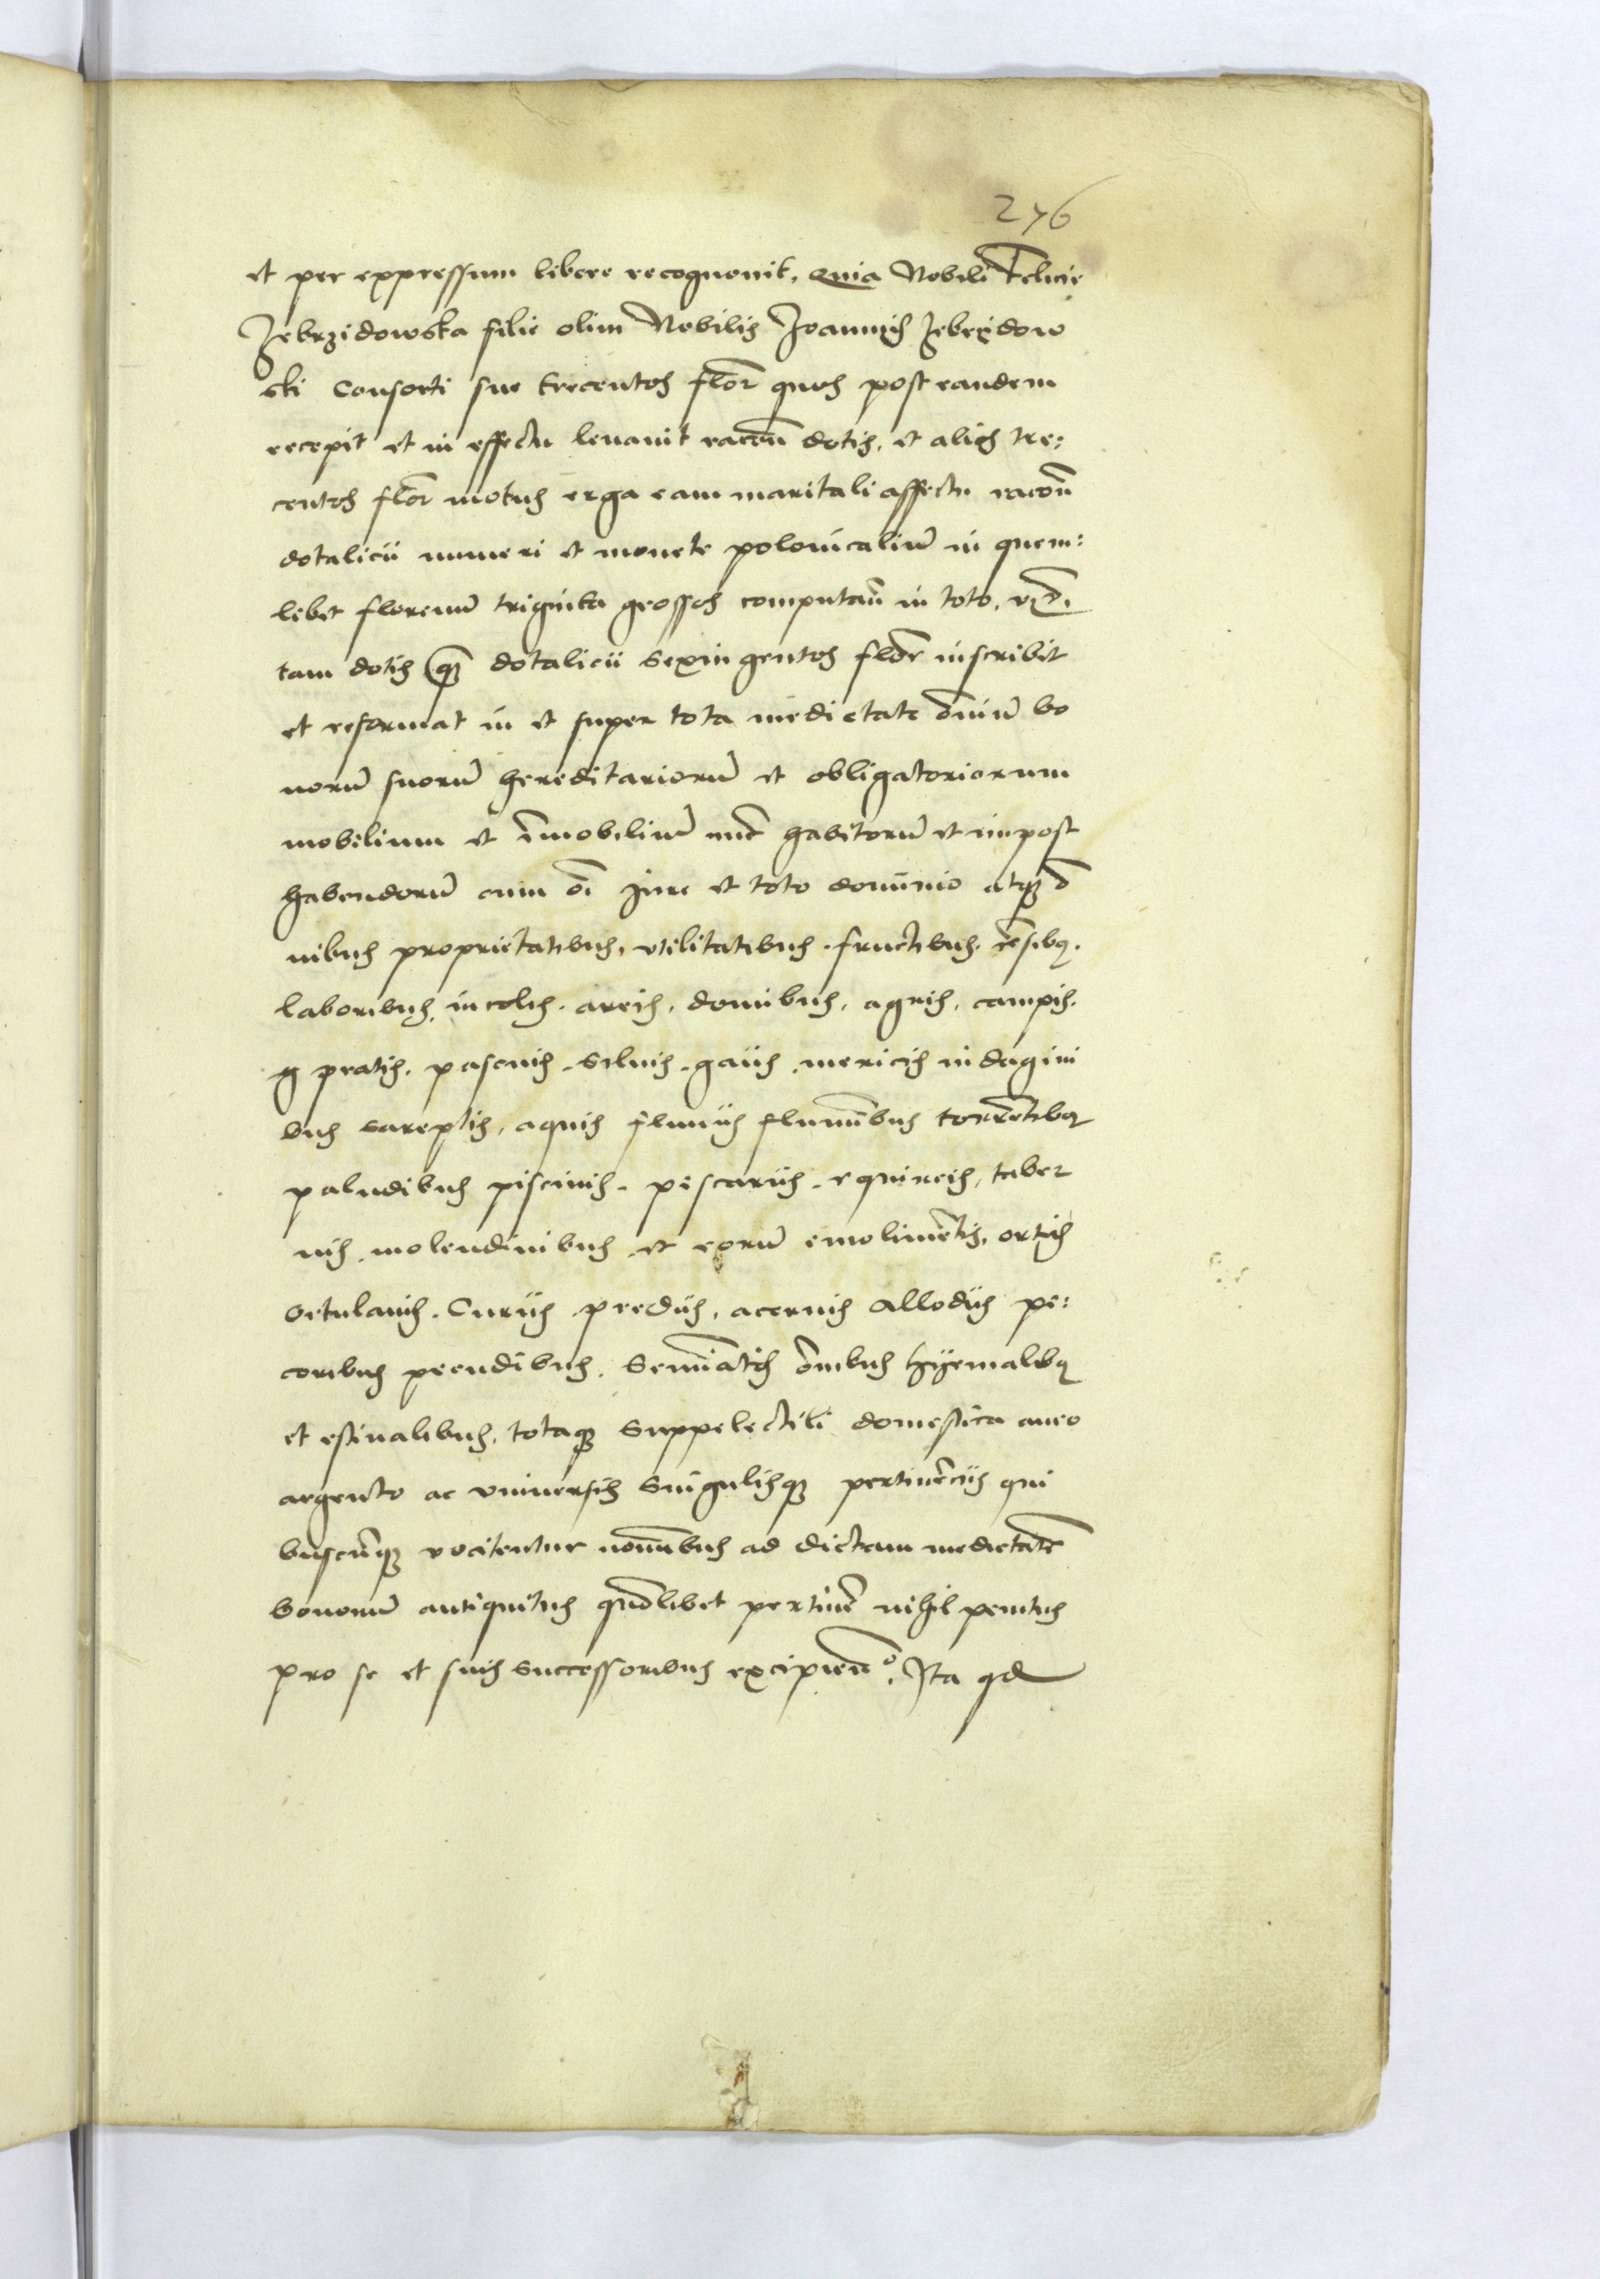 276
et per expressum libere recognovit, Quia Nobili Felicie
Zebrzidowska filie olim Nobilis Joannis Zebrzidow
ski Consorti sue trecentos flor quos post eandem
recepit et in effectu levavit racoē dotis, et alios tre:
centos flor motus erga eam maritali affectu racoē
dotalicii numeri et monete polonicaliū in quem:
libet florenū triginta grossos computan̄ in toto, vz̄
tam dotis qꝫ dotalicii Sexingentos flor inscribit
et reformat in et super tota medietate om̄iū bo
norū suorū hereditariorū et obligatoriorum
mobilium et īmobiliū nūc habitorū et impost
habendorū cum oī Jure et toto dominio atqꝫ ō
nibus proprietatibus, utilitatibus. fructibus. cēsibꝫ.
laboribus, incolis. areis, domibus, agris, campis.
g pratis, pascuis. Silvis. gaiis. mericis indagini
bus bareptis, aquis fluviis fluminibus torrētibꝫ
paludibus piscinis. piscariis. equireis, taber
nis. molendinibus et eorū emolimētis, ortis
ortulanis. Curiis prediis, acervis Allodiis pe:
coribus peendibus. Semīatis om̄ibus hyemalibꝫ
et estivalibus, totaqꝫ Suppelectili domestica auro
argento ac universis Singulisqꝫ pertinēciis qui
buscūqꝫ vocitentur nomībus ad dictam medietatē
bonorū antiquitus quōlibet pertinē nihil penitus
pro se et suis Successoribus excipien̄o. Ita qd